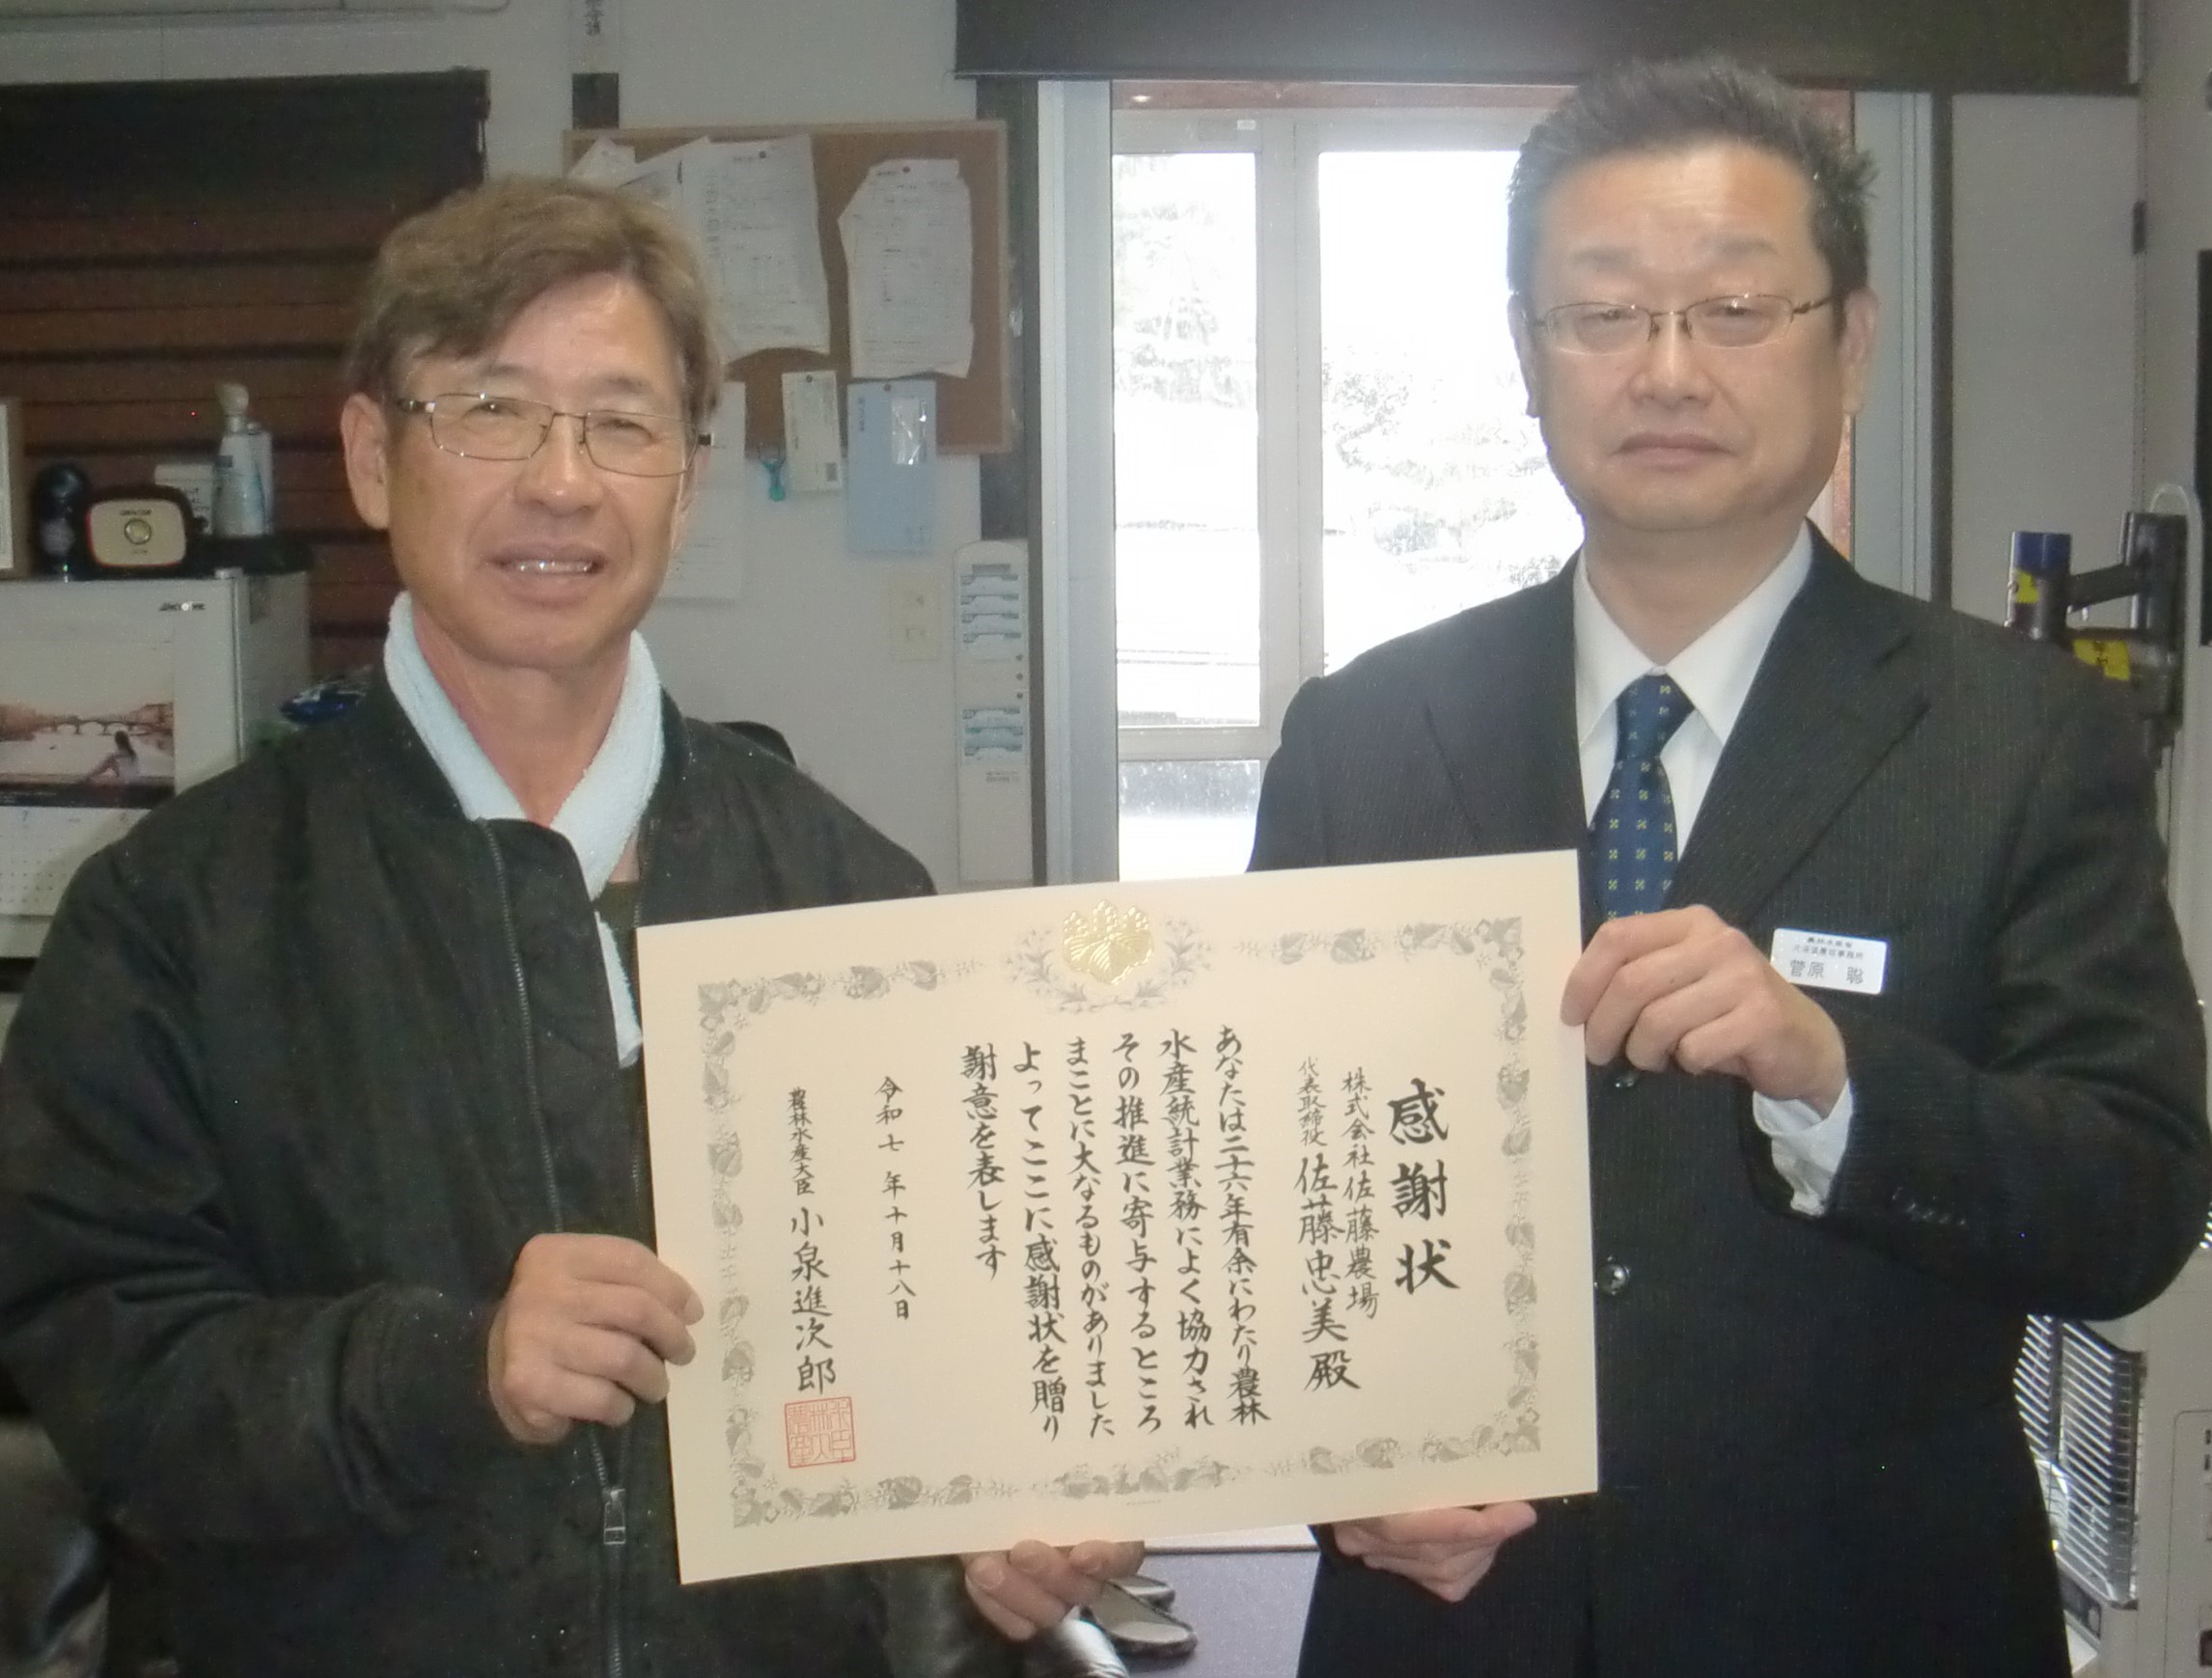 感謝状
株式会社佐藤農場
代表取締役 佐藤忠美殿
あなたは二十六年有余にわたり農林
水産統計業務によく協力され
その推進に寄与するところ
まことに大なるものがありました
よってここに感謝状を贈り
謝意を表します
令和七年十月十八日
農林水産大臣 小泉進次郎
農林水産省
菅原 聡